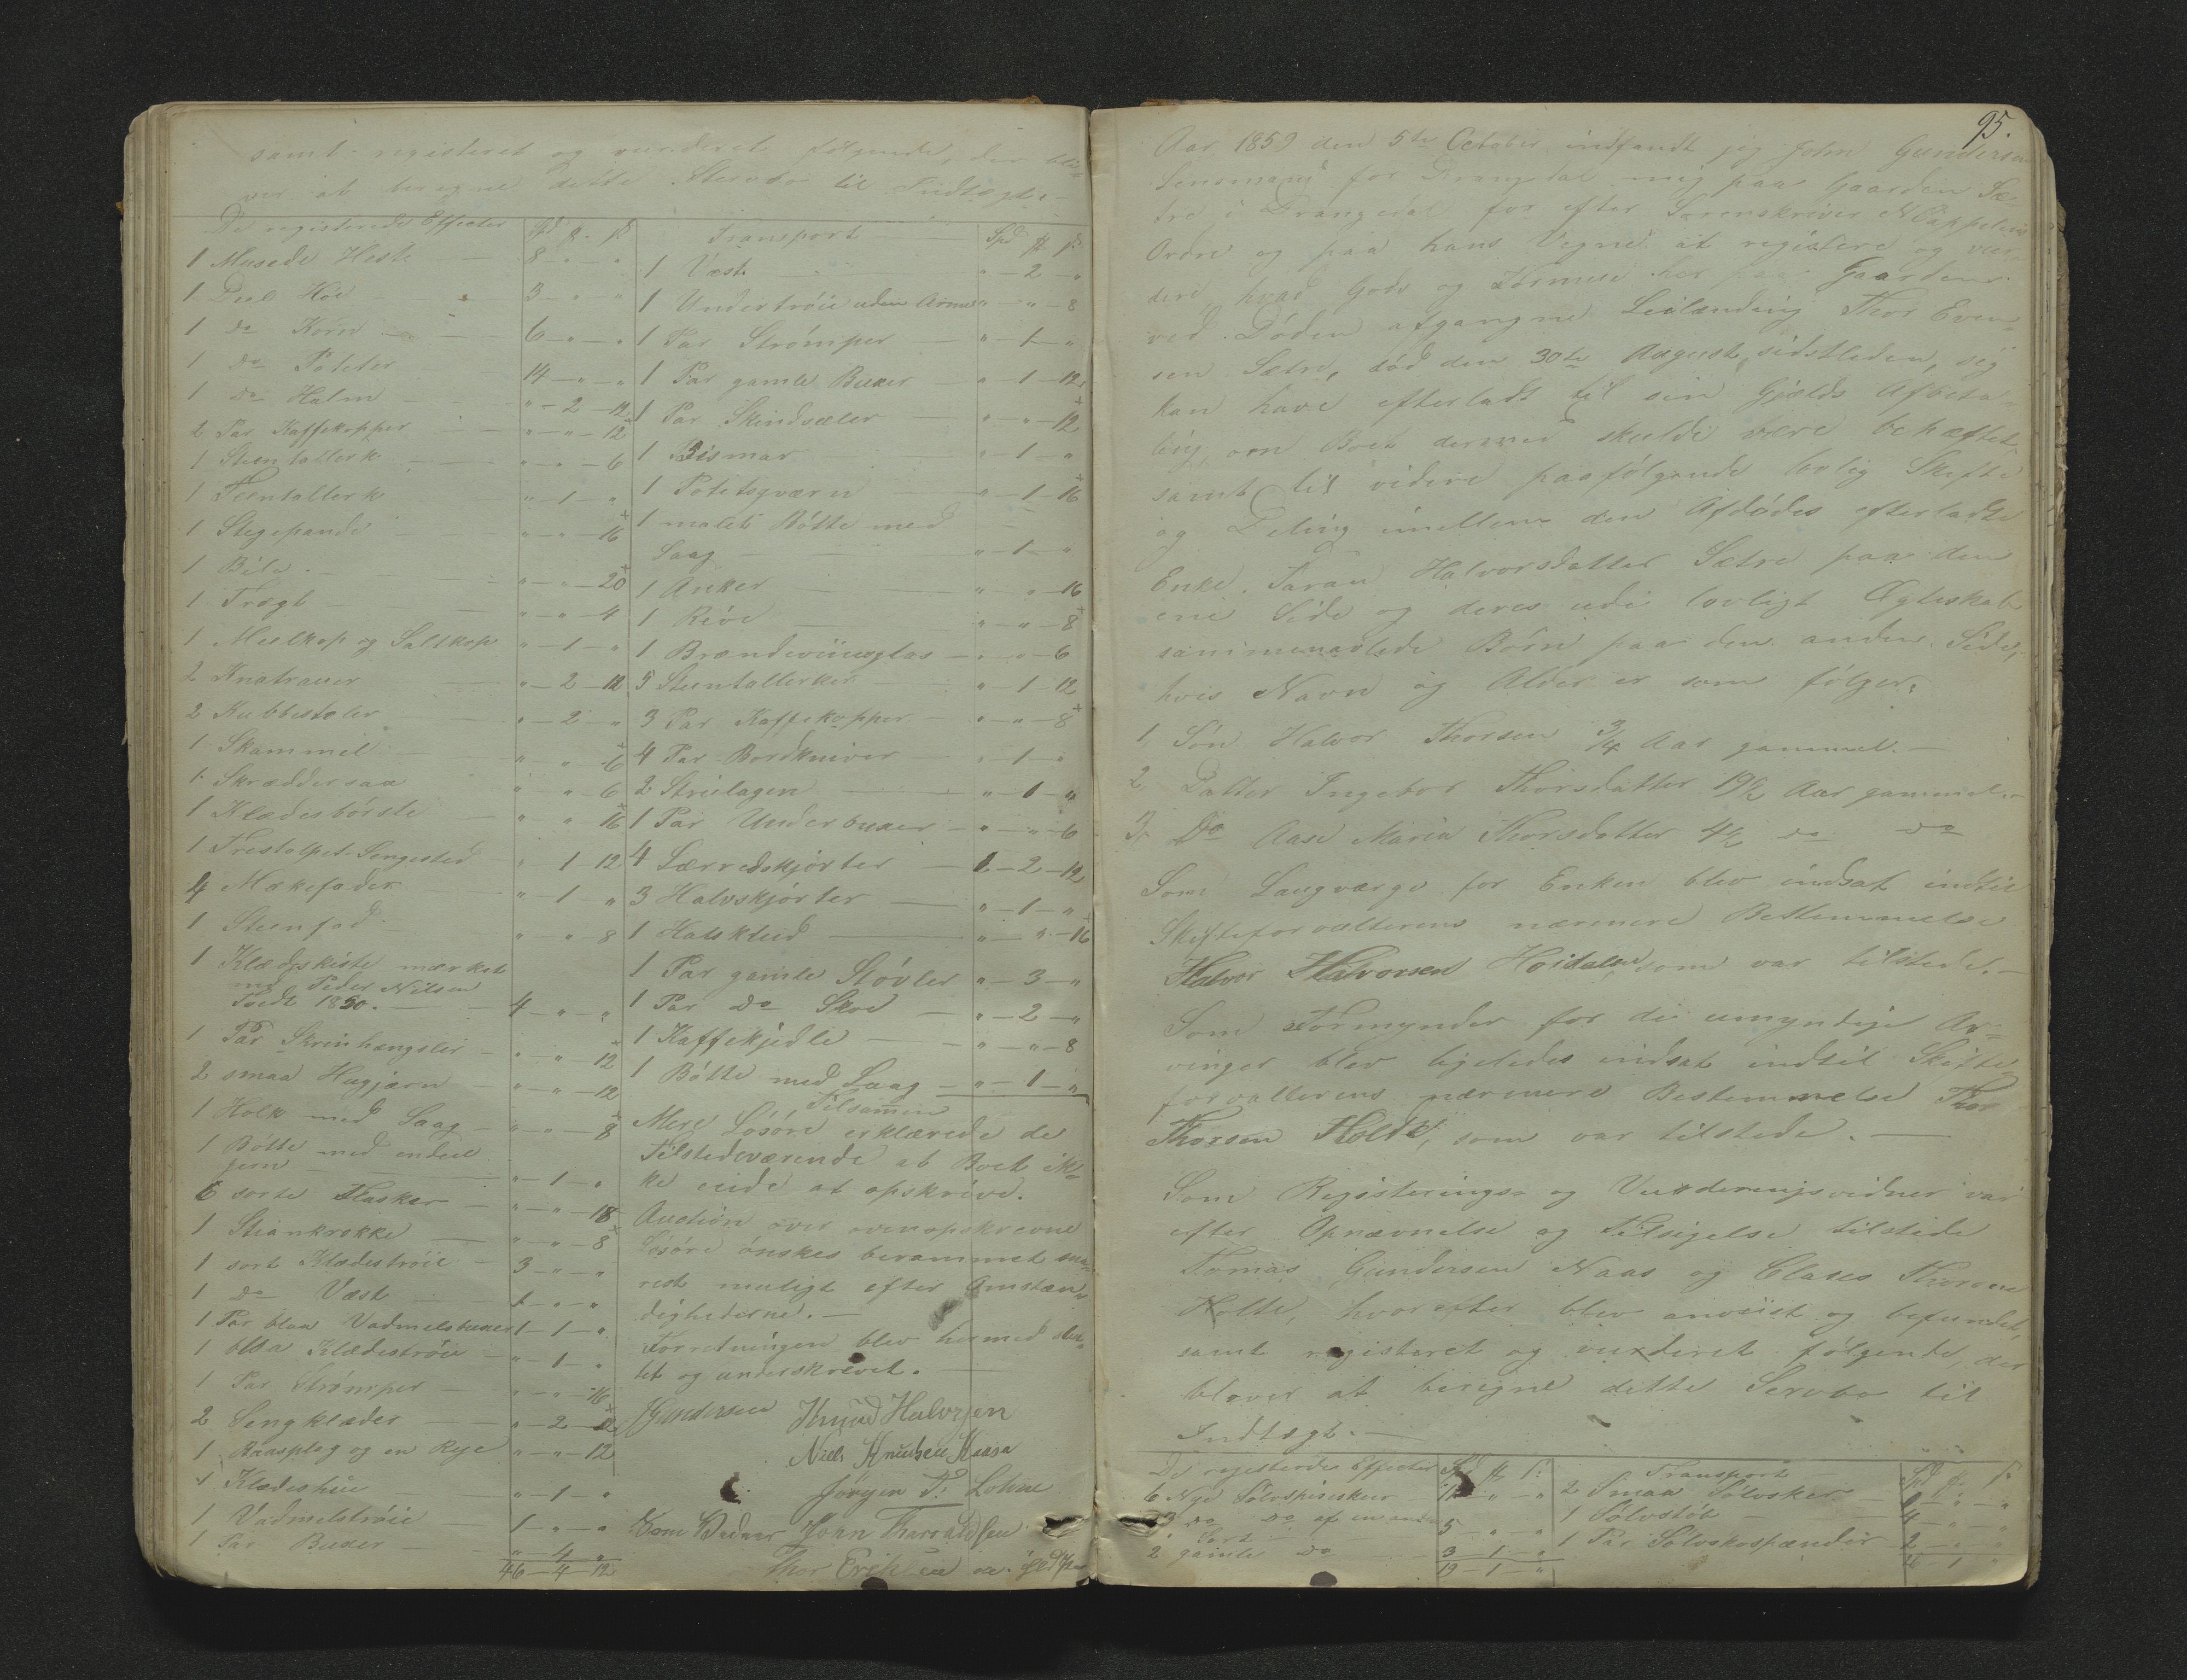 samt registeret og vurderet følgende, der bli-
ver at beregne dette Stervbo til Indtægt.
De registerede Effecter Spd ₰ ß
1 Musede Hest 8 - " - "
1 Deel Høe 3 - " - "
1 do Korn 6 - " - "
1 do Poteter 14 - " - "
1 do Halm " - 2 - 12
2 Par Kaffekopper " - " - 12
1 Steentallerk " - " - 6
1 Teentallerk " - 1 - "
1 Stegepande " - " - 16
1 Bile " - " - 20
1 Tragt " - " - 4
1 Meelkop og Saltkop " - 1 - "
2 Knatrauer " - 2 - 12
2 Kubbestoler " - 2 - "
1 Skammel " - " - 6
1 Skræddersaa " - " - 6
1 Klædesbørste " - " - 16
1 Trestolpet Sengested " - 1 - 12
4 Mækefader " - 1 - "
1 Steenfad " - " - 8
1 Klædeskiste mærket
med Peder Nilsen
Født 1850. 4 - " - "
1 Par Skrinhængsler " - " - 12
2 smaa Hugjærn " - " - 12
1 Holk med Laag " - " - 8
1 Bøtte med endeel
jern " - 1 - "
6 sorte Flasker " - " - 18
1 Steankrokke " - " - 8
1 sort Klædestrøie 3 - " - "
1 do Væst 1 - " - "
1 Par blaa Vadmelsbuxer 1 - 1 - "
1 blaa Klædestrøie " - 1 - "
1 Par Strømper " - " - 16
2 Sengklæder " - 2 - 12
1 Baasplog og en Reje " - " - 12
1 Klædeshue " - 1 - "
1 Vadmelstrøie 1 - " - "
1 Par Buxer " - 4 - "
46 - 4 - 12
Transport Spd ₰ ß
1 Væst " - 2 - "
1 Undertrøie uden Arme " - " - 8
1 Par Strømper " - 1 - "
1 Par gamle Buxer " - 1 - 12
1 Par Skindsæler " - " - 12
1 Bismar " - 1 - "
1 Potetsqværn " - 1 - 16
1 malet Bøtte med
Laag " - 1 - "
1 Anker " - " - 16
1 Reøe " - " - 8
1 Brændeviinsglas " - " - 6
5 Steentallerker " - 1 - 12
3 Par Kaffekopper " - " - 8
4 Par Bordkniver " - 1 - "
2 Strielagen " - 1 - "
1 Par Underbuxer " - " - 6
4 Lærredskjorter 1 - 2 - 12
3 Halvskjorter " - 1 - "
1 Halsklud " - " - 16
1 Par gamle Støvler " - 3 - "
1 Par do Skoe " - 2 - "
1 Kaffekjedle " - " - 8
1 Bøtte med Laag " - 1 - "
Tilsammen
Mere Løsøre erklærede de
Tilstedeværende at Boet ik-
ke eiede at opskrive.
Auction over ovenopskrevne
Løsøre ønskes berammet sna-
rest muligt efter Omstæn-
dighederne.
Forretningen blev hermed slut-
tet og underskrevet.
JGundersen Knud Halvorsen
Niels Knudsen Naasa
Jørgen P. Lohne
Som Vidner John Tharaldsen
Thor Eriksen
95.
Aar 1859 den 5te October indfandt jeg John Gundersen
Lensmand for Drangedal mig paa Gaarden Sæ-
tre i Drangedal for efter Sorenskriver NCappelens
Ordre og paa hans Vegne at registere og vur-
dere, hvad Gods og Formue her paa Gaarden
ved Døden afgangne Leilænding Thor Even-
sen Sætre, død den 30te August sidstleden, sig
kan have efterladt til sin Gjælds Afbeta-
ling, om Boet dermed skulde være behæftet,
samt til videre paafølgende lovlig Skifte
og Deling imellem den Afdødes efterladte
Enke Taran Halvorsdatter Sætre paa den
ene Side og deres udi lovligt Ægteskab
sammenavlede Børn paa den anden Side,
hvis Navn og Alder er som følger:
1, Søn Halvor Thorsen 3/4 Aar gammel.
2, Datter Ingebor Thorsdatter 19½ Aar gammel.
3, Do Aase Maria Thorsdatter 4½ do do
Som Laugværge for Enken blev indsat indtil
Skifteforvalterens nærmere Bestemmelse
Halvor Halvorsen Høidalen som var tilstede.
Som Formynder for de umyndige Ar-
vinger blev ligeledes indsat indtil Skifte-
forvalterens nærmere Bestemmelse Thor
Thorsen Holte, som var tilstede.
Som Registerings- og Vurderingsvidner var
efter Opnævnelse og Tilsigelse tilstede
Tomas Gundersen Naas og Clases Thorsen
Holte, hvorefter blev anviist og befundet,
samt registeret og vurderet følgende, der
bliver at beregne dette Servbo til
Indtægt.
De registerede Effecter Spd ₰ ß
6 Nye Sølvspiseskeer " - "
3 do do af en anden
Sort 5 - " - "
2 gamle do 3 - 1 - "
19 - 1 - "
Transport Spd ₰ ß
2 Smaa Sølvsker " - "
1 Sølvstøb 4 - " - "
1 Par Sølvskospænder 2 - " - "